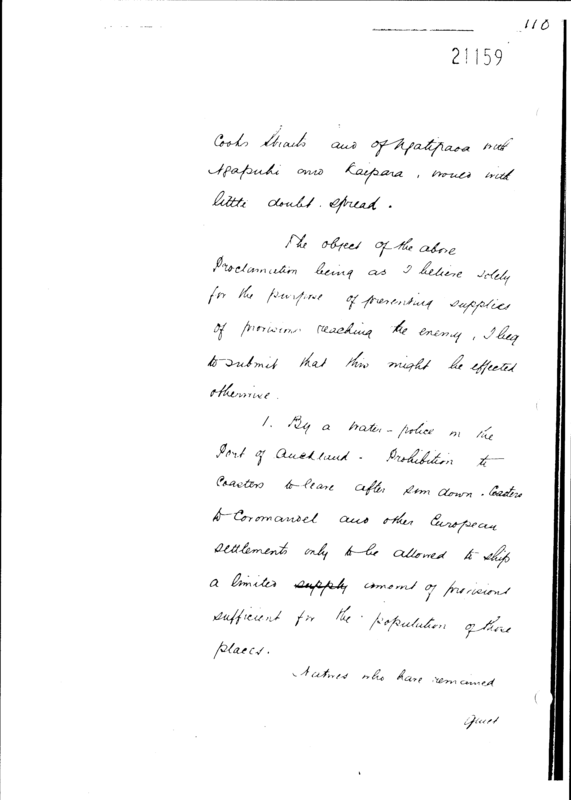 110
21159
Cooks Straits and of Ngatipaoa with
Ngapuhi and Kaipara, would with
little doubt spread.
The object of the above
Proclamation being as I believe solely
for the purpose of preventing supplies
of provisions reaching the enemy, I beg
to submit that this might be effected
otherwise.
1. By a water-police in the
Port of Auckland - Prohibition to
Coasters to leave after sun down. Coasters
to Coromandel and other European
settlements only to be allowed to ship
a limited supply amount of provisions
sufficient for the population of those
places.
Natives who have remained
quiet